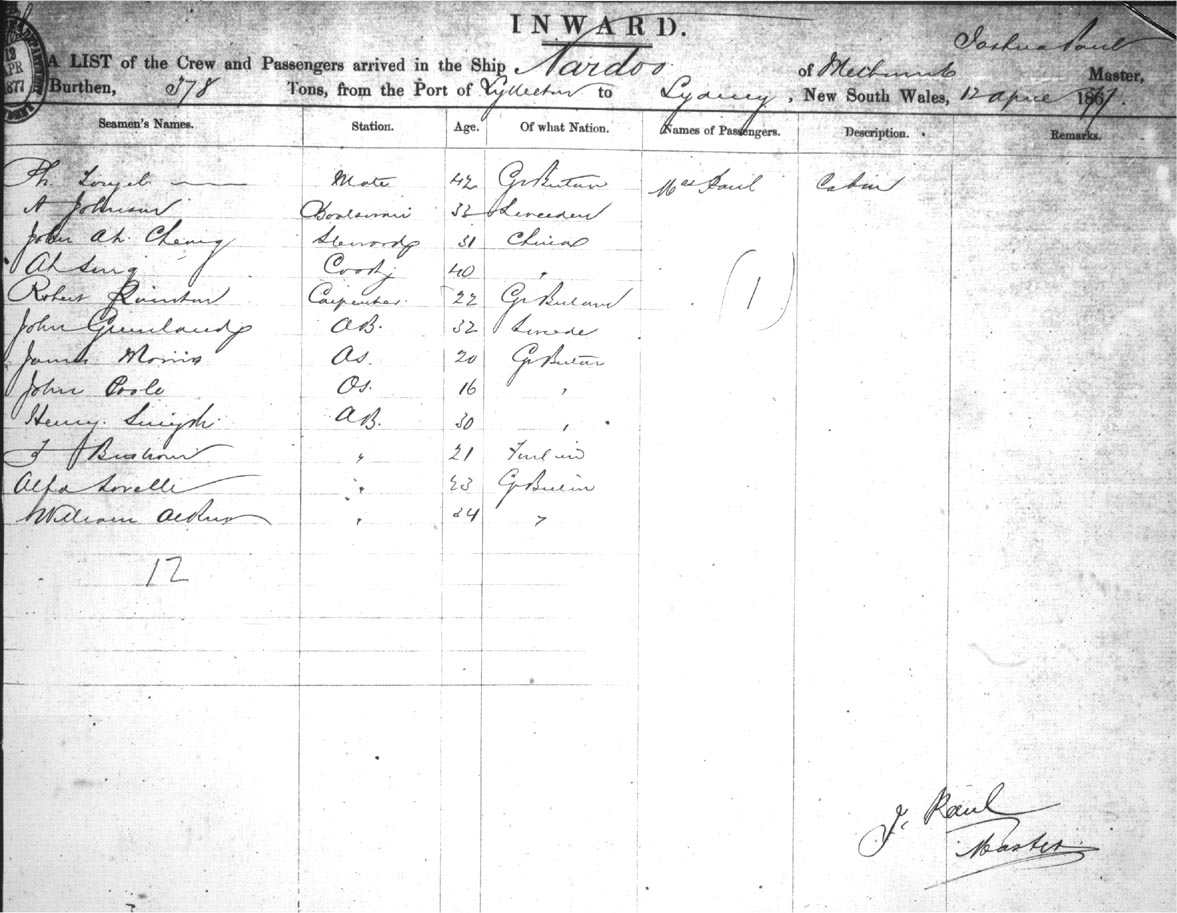 INWARD.
Joshua Paul
A LIST of the Crew and Passengers arrived in the Ship Nardoo of Master,
Burthen, 378 Tons, from the Port of to Sydney, New South Wales, 12 April 1877.
Seamen's Names. Station. Age. Of what Nation. Names of Passengers. Description. Remarks.
Mate 42 Gr Britain Mrs Paul Cabin
A Johnson Boatswain 32 Sweeden
John Ah. Cheong Steward 31 China
Ah Sing Cook 40 "
Robert Carpenter 22 Gr Britain
John Greenland AB. 32 Swede
James Morris Os. 20 Gr Britain
John Poole Os. 16 "
Henry AB. 30 "
" 21
Alfd Lovelle " 23 Gr Britain
William " 34 "
(1)
12
J. Paul
Master
19
APR
1877